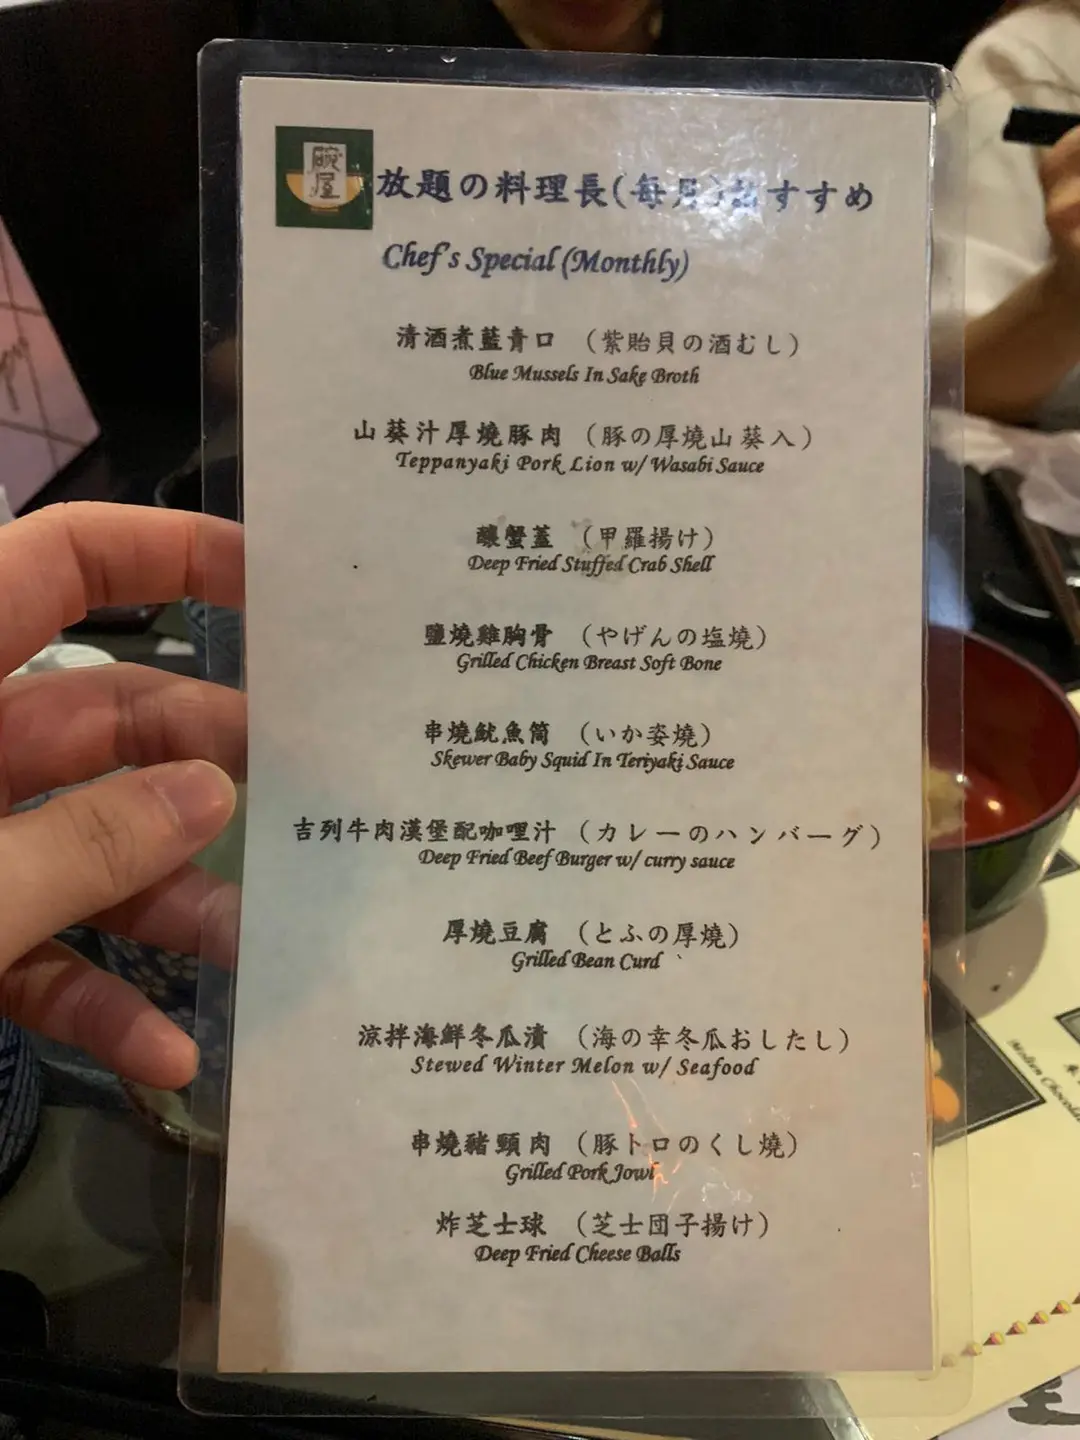 碗屋
放題の料理長(毎月)おすすめ
Chef's Special (Monthly)
清酒煮藍青口 （紫貽貝の酒むし）
Blue Mussels In Sake Broth
山葵汁厚燒豚肉 （豚の厚燒山葵入）
Teppanyaki Pork Lion w/ Wasabi Sauce
釀蟹蓋 （甲羅揚け）
Deep Fried Stuffed Crab Shell
鹽燒雞胸骨 （やげんの塩燒）
Grilled Chicken Breast Soft Bone
串燒魷魚筒 （いか姿燒）
Skewer Baby Squid In Teriyaki Sauce
吉列牛肉漢堡配咖哩汁 （カレーのハンバーグ）
Deep Fried Beef Burger w/ curry sauce
厚燒豆腐 （とふの厚燒）
Grilled Bean Curd
涼拌海鮮冬瓜漬 （海の幸冬瓜おしたし）
Stewed Winter Melon w/ Seafood
串燒豬頸肉 （豚トロのくし燒）
Grilled Pork Jowl
炸芝士球 （芝士団子揚け）
Deep Fried Cheese Balls
Molten Chocola